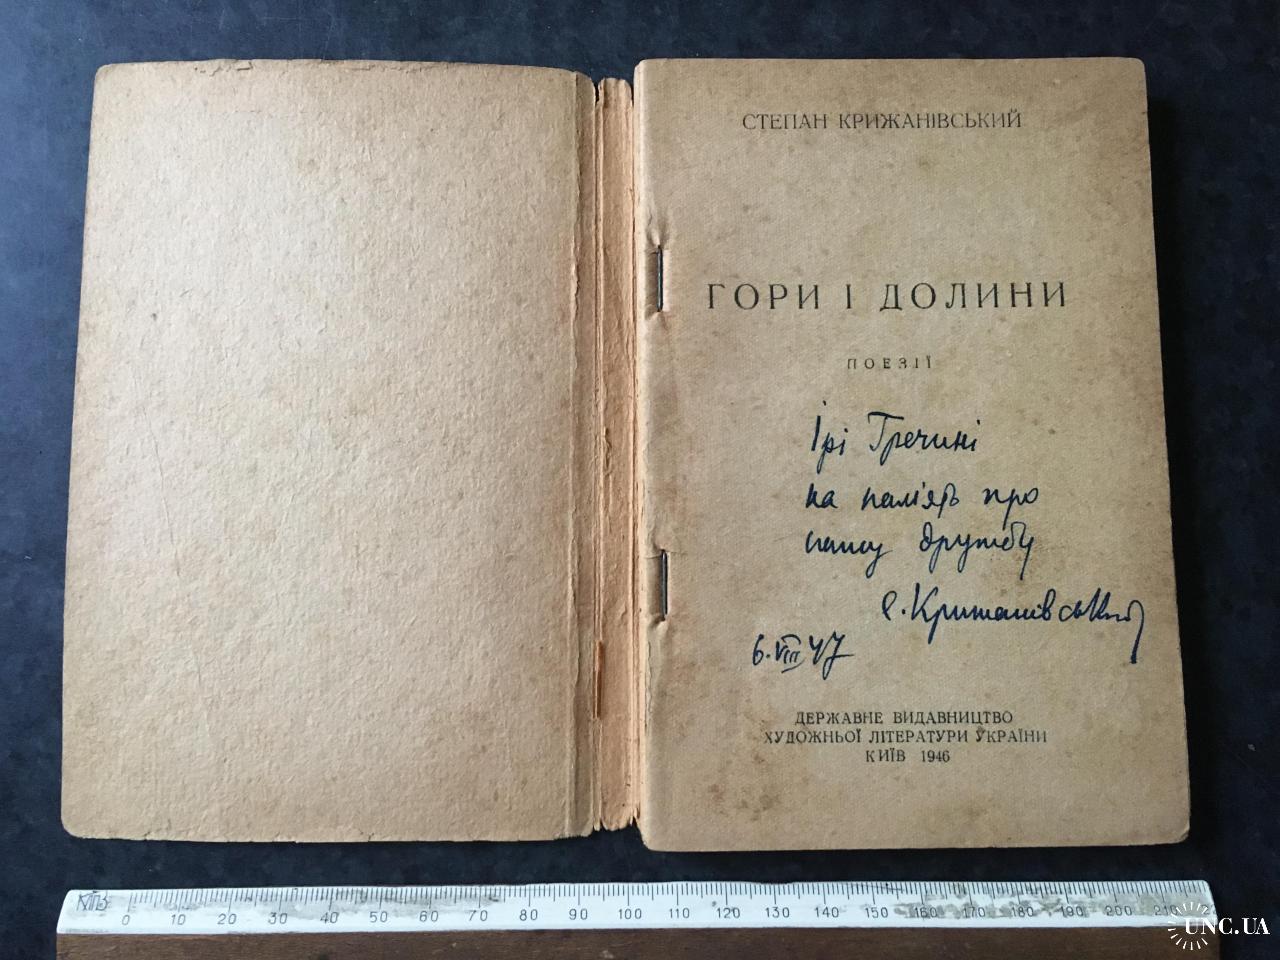 СТЕПАН КРИЖАНІВСЬКИЙ
ГОРИ І ДОЛИНИ
ПОЕЗІЇ
Ірі Гречині
на пам'ять про
нашу дружбу
С. Крижанівський
6.VIII 47
ДЕРЖАВНЕ ВИДАВНИЦТВО
ХУДОЖНЬОЇ ЛІТЕРАТУРИ УКРАЇНИ
КИЇВ 1946
0 10 20 30 40 50 60 70 80 90 100 110 120 130 140 150 160 170 180 190 200 210
UNC.UA